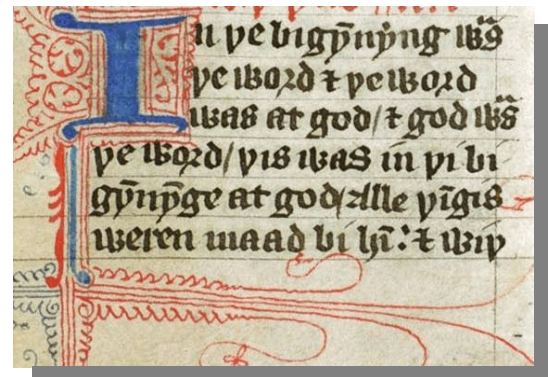 In þe bigȳnȳng wᵃs
þe word ⁊ þe word
was at god/ ⁊ god wᵃs
þe word/ þis was in þi bi
gȳnȳge at god/ alle þīgis
weren maad bi hī: ⁊ wiþ